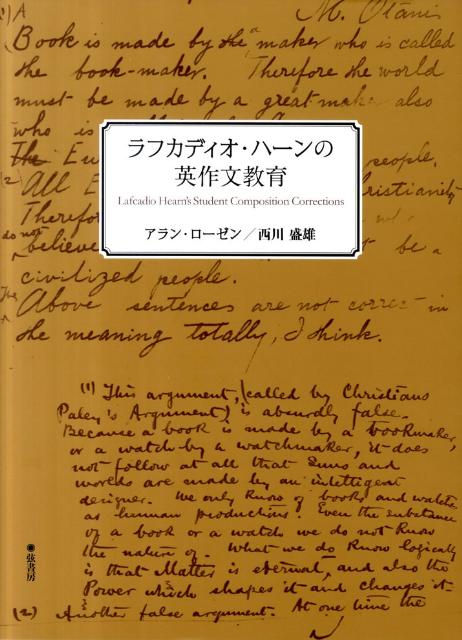 (1) A
M. Otani
Book is made by the a maker who is called
the book-maker. Therefore the world
must be made by a great also
who is
The Eu people.
(2) All E ristianity
Therefo
do not
believe t be a
civilized people.
The
Above sentences are not correct in
the meaning totally, I think.
ラフカディオ・ハーンの
英作文教育
Lafcadio Hearn's Student Composition Corrections
アラン・ローゼン／西川 盛雄
(1) This argument, (called by Christians
Paley's Argument) is absurdly false.
Because a book is made by a bookmaker,
or a watch by a watchmaker, it does
not follow at all that suns and
worlds are made by an intelligent
designer. We only know of books and watches
as human productions. Even the substance
of a book or a watch we do not know
the nature of. What we do know logically
is that Matter is eternal, and also the
Power which shapes it and changes it.
(2) Another false argument. At one time the
弦書房